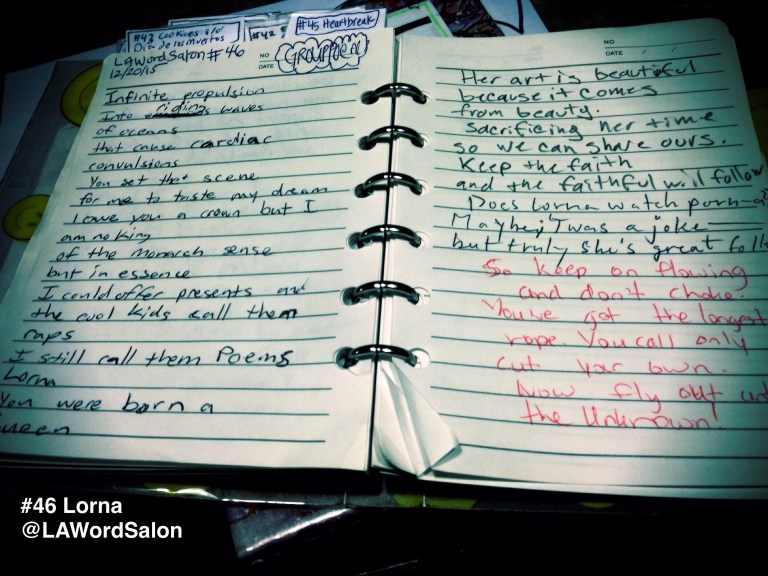 #43 Cookies &/or
Dia de los Muertos
#42
#45 Heartbreak
LAWordSalon #46
12/20/15
NO
DATE
GROUP POEM
Infinite propulsion
Into riding waves
of oceans
that cause cardiac
convulsions
You set the scene
for me to taste my dream
I owe you a crown but I
am no king
of the monarch sense
but in essence
I could offer presents and
the cool kids call them
raps
I still call them Poems
Lorna
You were born a
ueen
NO
DATE
Her art is beautiful
because it comes
from beauty.
Sacrificing her time
so we can share ours.
Keep the faith
and the faithful will follow
Does Lorna watch porn-a?
Maybe; Twas a joke
but truly she's great folk
So keep on flowing
and don't choke.
You've got the longest
rope. You call only
cut your own.
Now fly out
the Unknown!
#46 Lorna
@LAWordSalon